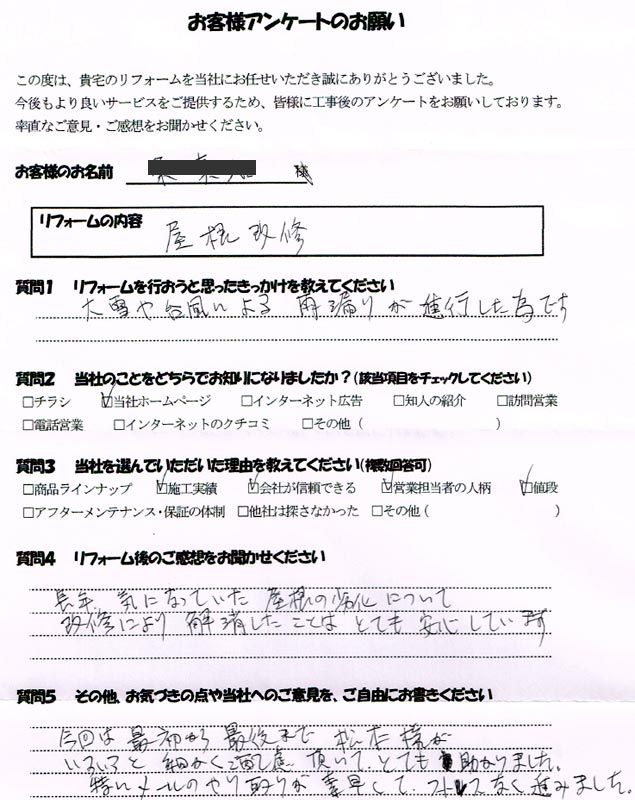 お客様アンケートのお願い
この度は、貴宅のリフォームを当社にお任せいただき誠にありがとうございました。
今後もより良いサービスをご提供するため、皆様に工事後のアンケートをお願いしております。
率直なご意見・ご感想をお聞かせください。
お客様のお名前 様
リフォームの内容 屋根改修
質問1 リフォームを行おうと思ったきっかけを教えてください
大雪や台風による 雨漏りが進行した為です
質問2 当社のことをどちらでお知りになりましたか？(該当項目をチェックしてください)
□チラシ ☑当社ホームページ □インターネット広告 □知人の紹介 □訪問営業
□電話営業 □インターネットのクチコミ □その他（ ）
質問3 当社を選んでいただいた理由を教えてください(複数回答可)
□商品ラインナップ ☑施工実績 ☑会社が信頼できる ☑営業担当者の人柄 ☑値段
□アフターメンテナンス・保証の体制 □他社は探さなかった □その他（ ）
質問4 リフォーム後のご感想をお聞かせください
長年、気になっていた 屋根の劣化について
改修により 解消したことは とても 安心しています
質問5 その他、お気づきの点や当社へのご意見を、ご自由にお書きください
今回は 最初から 最後まで 松本様が
いろいろと 細かくご配慮 頂いて、とても 助かりました。
特にメールのやり取りが 素早くて、ストレスなく進みました。